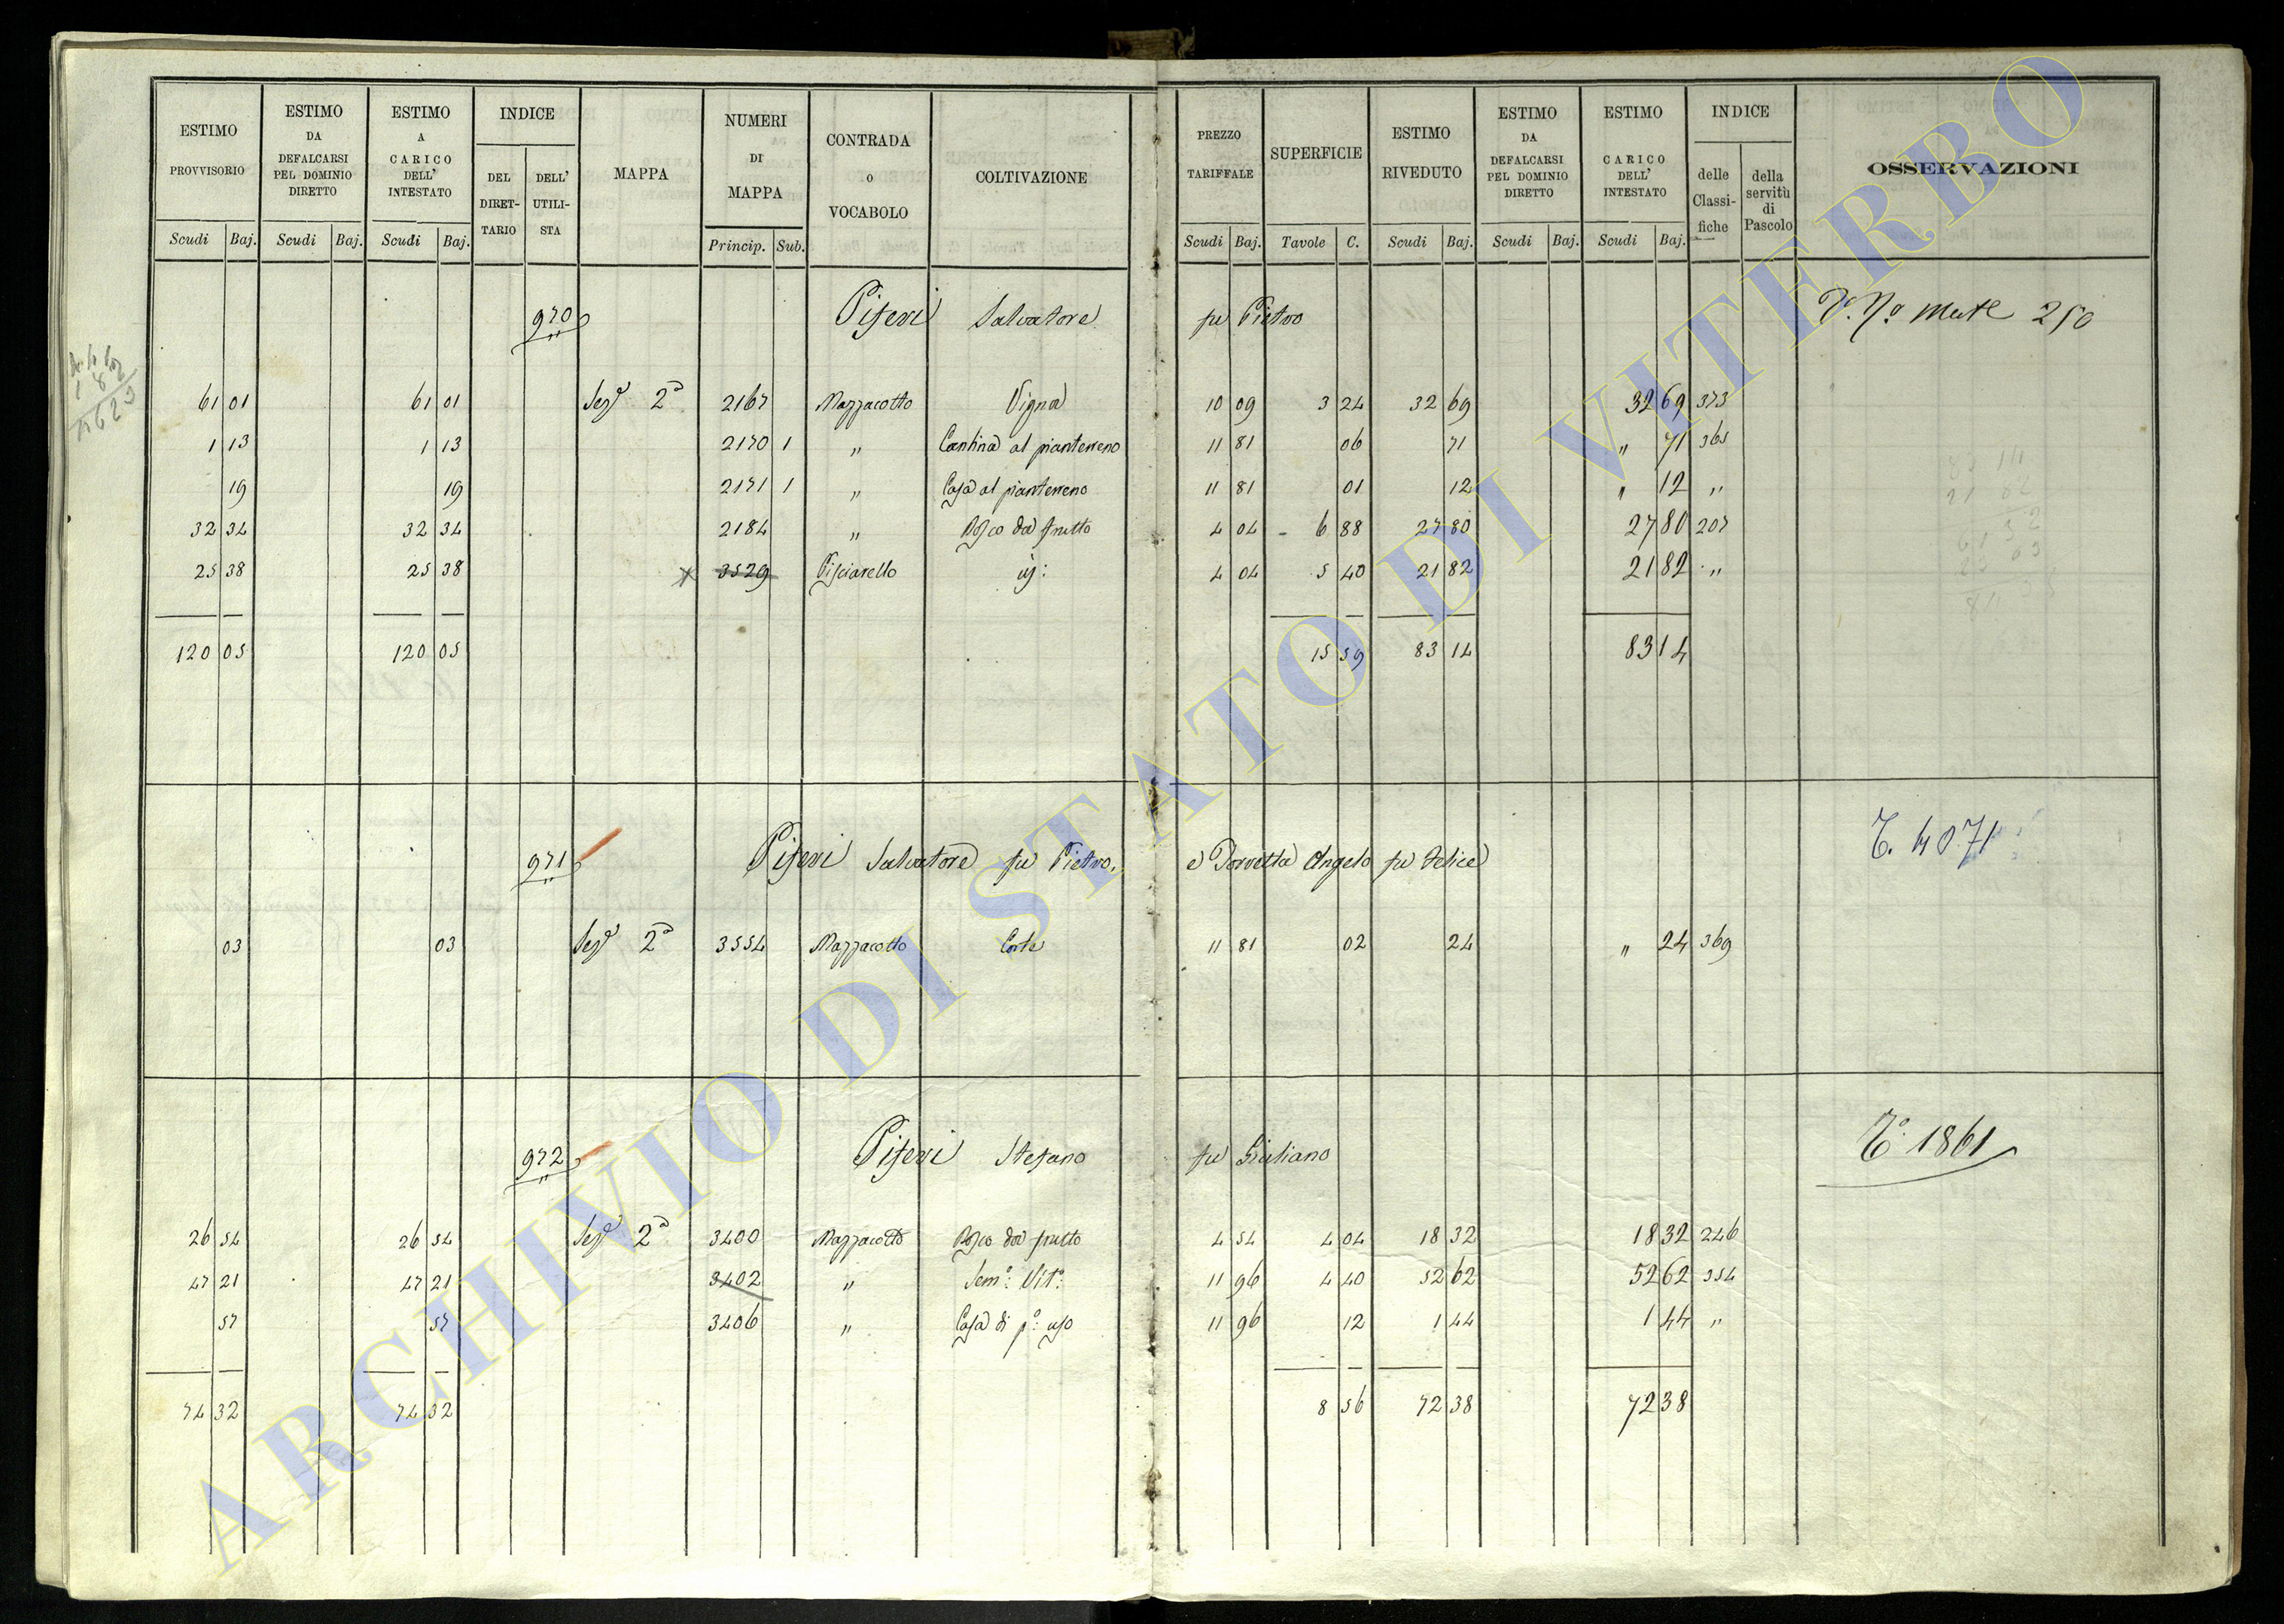 ESTIMO PROVVISORIO | ESTIMO DA DEFALCARSI PEL DOMINIO DIRETTO | ESTIMO A CARICO DELL' INTESTATO | INDICE DEL DIRETTARIO | DELL' UTILISTA | MAPPA | NUMERI DI MAPPA | CONTRADA o VOCABOLO | COLTIVAZIONE | PREZZO TARIFFALE | SUPERFICIE | ESTIMO RIVEDUTO | ESTIMO DA DEFALCARSI PEL DOMINIO DIRETTO | ESTIMO A CARICO DELL' INTESTATO | INDICE delle Classifiche | della servitù di Pascolo | OSSERVAZIONI
Scudi Baj. Scudi Baj. Scudi Baj. Princip. Sub. Scudi Baj. Tavole C. Scudi Baj. Scudi Baj. Scudi Baj.
970 Piferi Salvatore fu Pietro 250
61 01 61 01 Sez.e 2a 2167 Mazzacotto Vigna 10 09 3 24 32 69 32 69 373
1 13 1 13 2170 1 " Cantina al pianterreno 11 81 06 71 " 71 365
19 19 2171 1 " Casa al pianterreno 11 81 01 12 " 12 "
32 34 32 34 2184 " Bosco da frutto 4 04 6 88 27 80 27 80 207
25 38 25 38 x 3529 Pisciarello id: 4 04 5 40 21 82 21 82 "
120 05 120 05 15 59 83 14 83 14
971 Piferi Salvatore fu Pietro, e Porretta Angelo fu Felice T. 4071
03 03 Sez.e 2a 3554 Mazzacotto Corte 11 81 02 24 " 24 369
972 Piferi Stefano fu Giuliano To. 1861
26 54 26 54 Sez.e 2a 3400 Mazzacotto Bosco da frutto 4 54 4 04 18 32 18 32 246
47 21 47 21 3402 " Sem.o Vit.o 11 96 4 40 52 62 52 62 354
57 57 3406 " Casa di p.o uso 11 96 12 1 44 1 44 "
74 32 74 32 8 56 72 38 72 38
ARCHIVIO DI STATO DI VITERBO